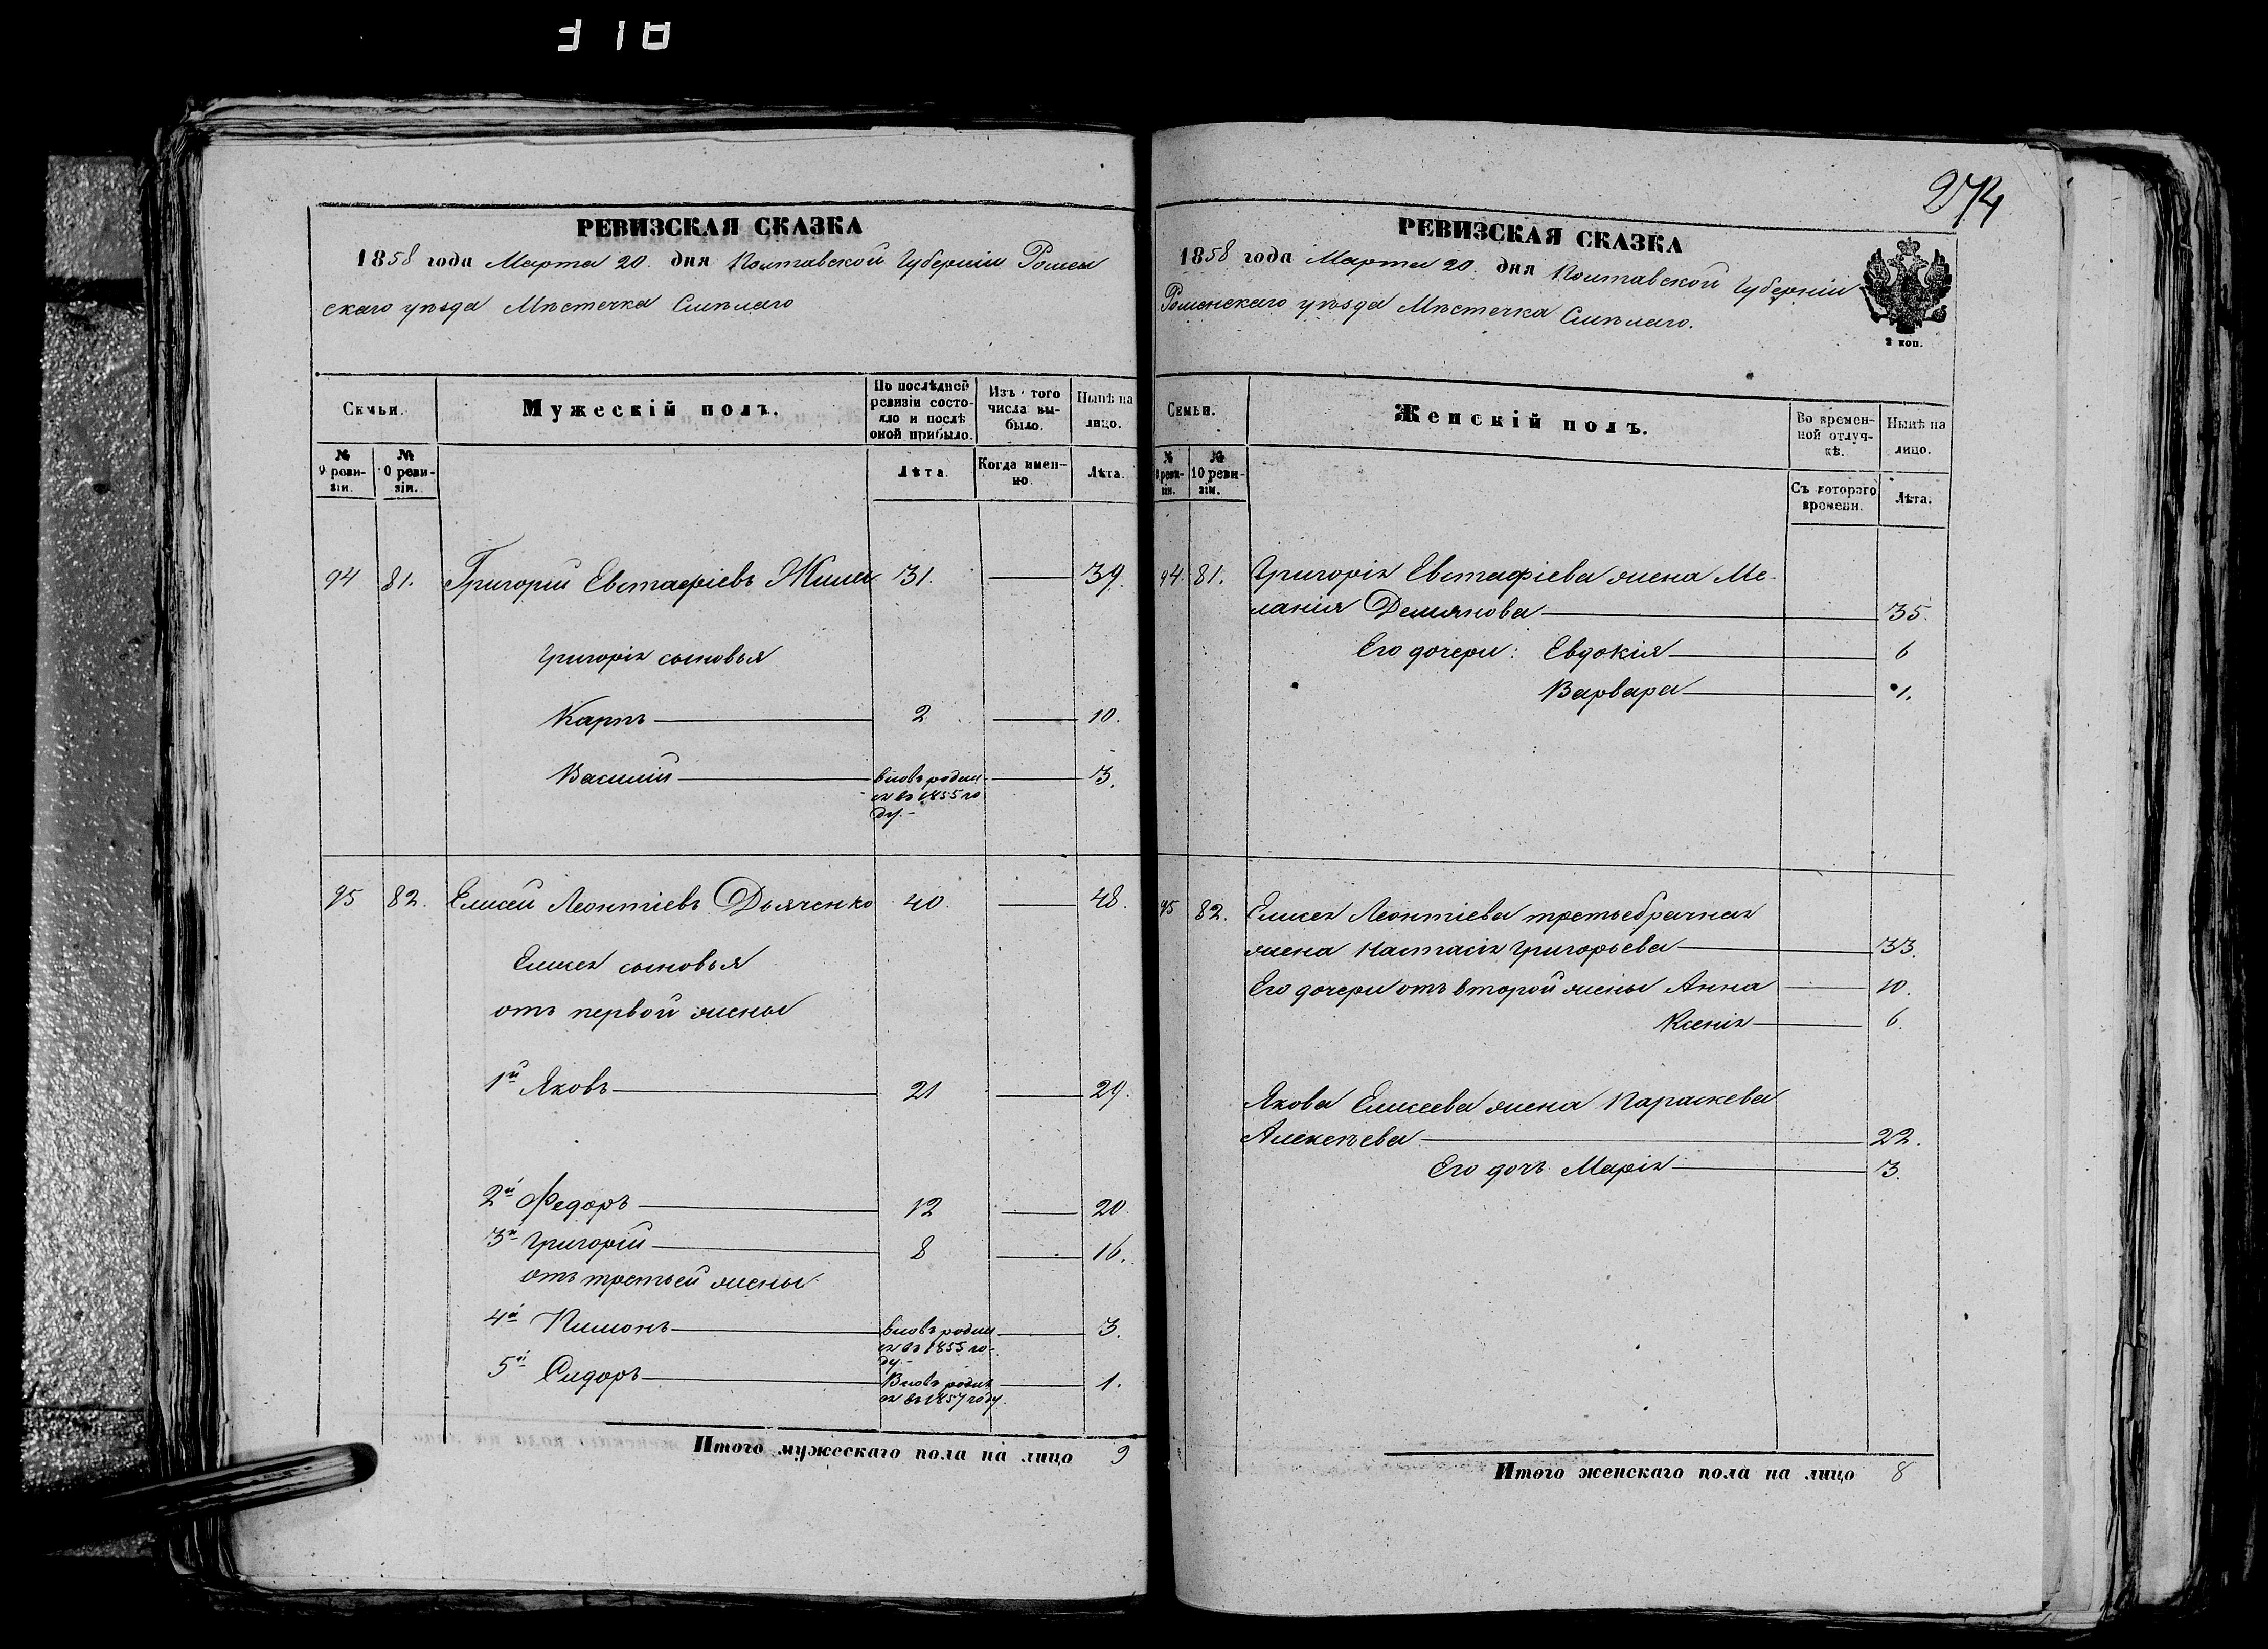 318
РЕВИЗСКАЯ СКАЗКА
1858 года Марта 20. дня Полтавской Губерніи Ромен
скаго уѣзда Мѣстечка Смѣлаго
Семьи.
Мужескій полъ.
По послѣдней ревизіи состояло и послѣ оной прибыло.
Изъ того числа выбыло.
Нынѣ на лицо.
№ 9 ревизіи.
№ 10 ревизіи.
Лѣта.
Когда именно.
Лѣта.
94 81. Григорій Евстафіевъ 31. 39.
Григорія сыновья
Карпъ 2 10.
Василій вновь родил 3.
ся въ 1855 го
ду.-
95 82. Елисей Леонтіевъ Дьяченко 40. 48.
Елисея сыновья
отъ первой жены
1й Яковъ 21 29.
2й Федоръ 12 20
3й Григорій 8 16.
отъ третьей жены
4й Пимонъ вновь родил 3.
ся въ 1855 го-
ду.-
5й Сидоръ Вновь родил 1.
ся въ 1857 году.
Итого мужескаго пола на лицо 9
274
РЕВИЗСКАЯ СКАЗКА
1858 года Марта 20. дня Полтавской Губерніи
Роменскаго уѣзда Мѣстечка Смѣлаго.
2 коп.
Семьи.
Женскій полъ.
Во временной отлучкѣ.
Нынѣ на лицо.
№ 9 ревизіи.
№ 10 ревизіи.
Съ котораго времени.
Лѣта.
94. 81. Григорія Евстафіева жена Ме-
ланія Демянова 35.
Его дочери: Евдокія 6
Варвара 1.
95 82. Елисея Леонтіева третьебрачная
жена Настасія Григорьева 33.
Его дочери отъ второй жены Анна 10.
Ксенія 6.
Якова Елисеева жена Параскева
Алексѣева 22.
Его дочь Марія 3.
Итого женскаго пола на лицо 8